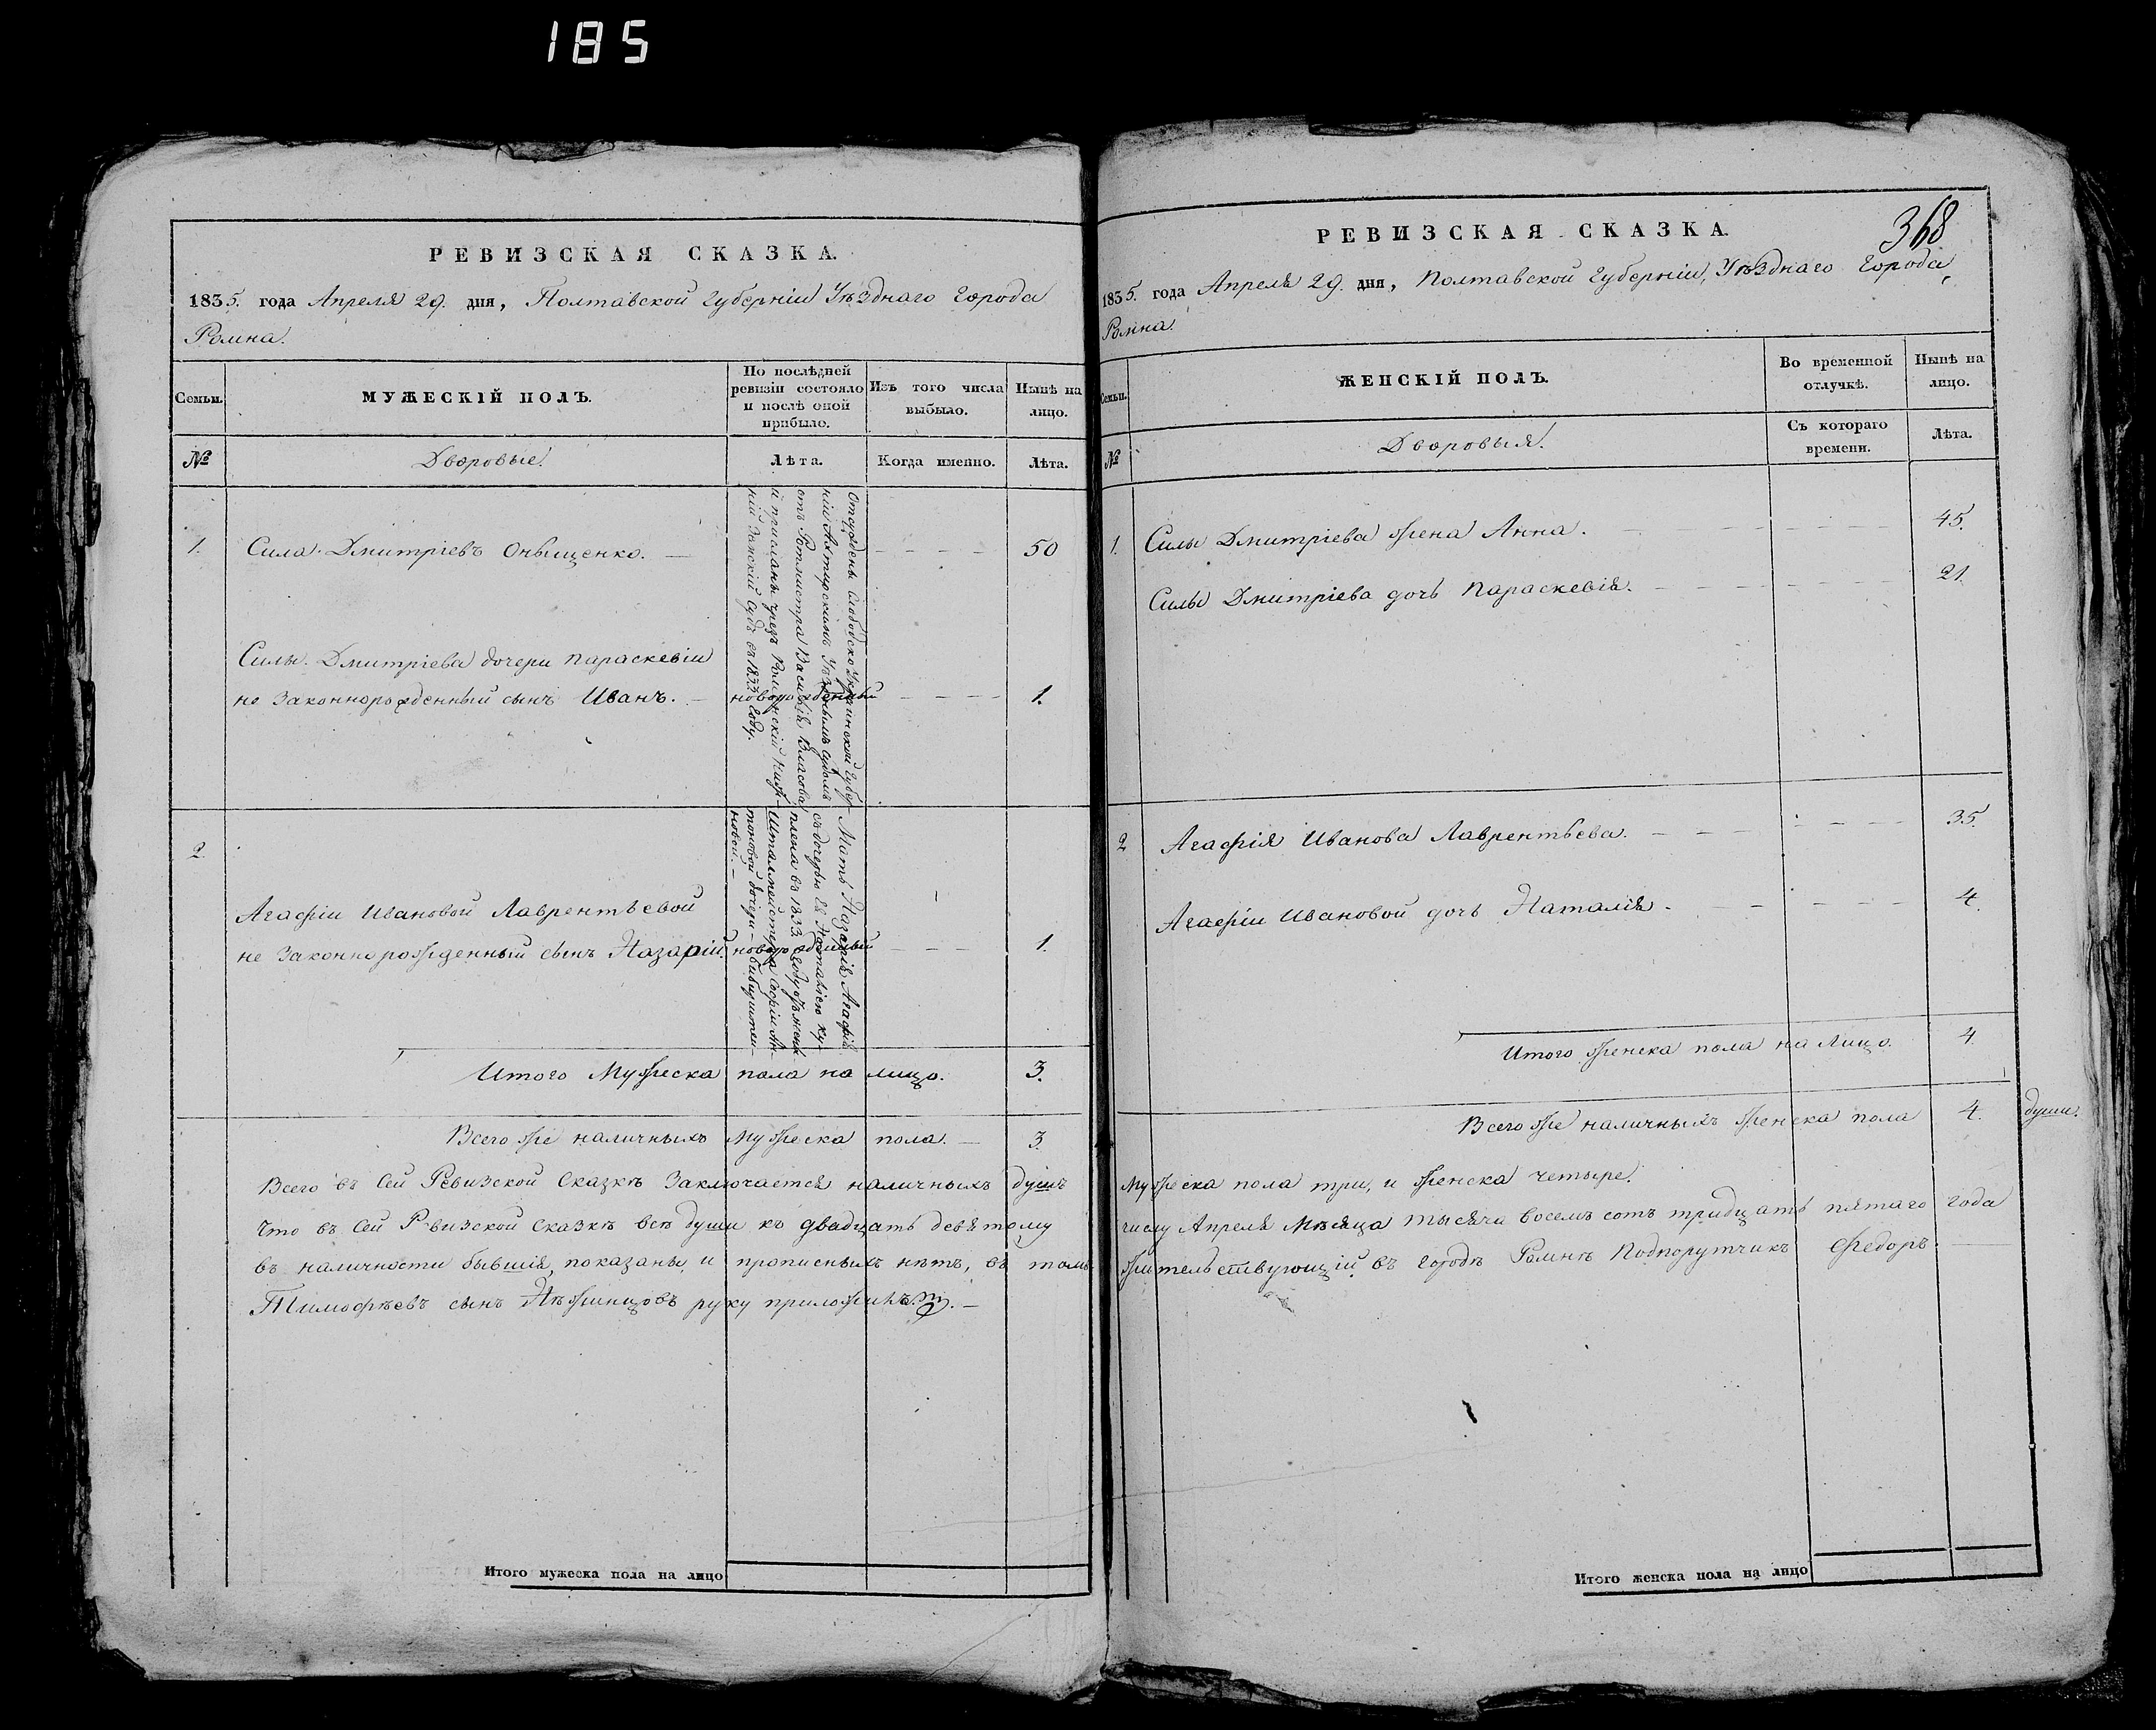 185
РЕВИЗСКАЯ СКАЗКА.
1835. года Апреля 29. дня, Полтавской Губерніи Уѣзднаго Города
Ромна.
Семьи.
МУЖЕСКІЙ ПОЛЪ.
По послѣдней
ревизіи состояло
и послѣ оной
прибыло.
Изъ того числа
выбыло.
Нынѣ на
лицо.
№
Дворовые.
Лѣта.
Когда именно.
Лѣта.
1.
Сила Дмитріевъ Онищенко.
50
Отсужденъ Слободско Украинской Губер-
ніи Ахтирскимъ Уѣзднымъ Судомъ
отъ Ротмистра Василія Власова
и присланъ чрезъ Роменскій Ниж-
ній Земскій Судъ въ 1833 году.
Силы Дмитріева дочери Параскевіи
не законнорожденный сынъ Иванъ. — новорожденный
1.
2
Мать Назарія Агафія
съ дочерью Ея Наталіею ку-
плена въ 1833. году
Шталмейстера Софіи Ан-
тоновой дочери
новой. —
Агафіи Ивановой Лаврентьевой
не законнорожденный сынъ Назарій. новорожденный
1.
Итого Мужеска пола на лицо.
3.
Всего же наличныхъ мужеска пола. —
3
Всего въ Сей Ревизской Сказкѣ Заключается наличныхъ душъ
Что въ Сей Ревизской Сказкѣ всѣ души къ двадцать девятому
въ наличности бывшія, показаны, и прописныхъ нѣтъ, въ томъ
Тимофѣевъ сынъ Нѣжинцовъ руку приложилъ. —
Итого мужеска пола на лицо
РЕВИЗСКАЯ СКАЗКА.
368
1835. года Апреля 29. дня, Полтавской Губерніи, Уѣзднаго Города,
Ромна.
Семьи.
ЖЕНСКІЙ ПОЛЪ.
Во временной
отлучкѣ.
Нынѣ на
лицо.
№
Дворовыя.
Съ котораго
времени.
Лѣта.
1.
Силы Дмитріева жена Анна.
45.
Силы Дмитріева дочь Параскевія.
21.
2
Агафія Иванова Лаврентьева.
35.
Агафіи Ивановой дочь Наталія.
4.
Итого женска пола на Лицо.
4.
Всего же наличныхъ женска пола
4.
души.
мужеска пола три, и женска четыре.
числу Апреля Мѣсяца тысяча восемъ сотъ тридцать пятаго года
жительствующій въ городѣ Ромнѣ Подпорутчикъ Федоръ
Итого женска пола на лицо